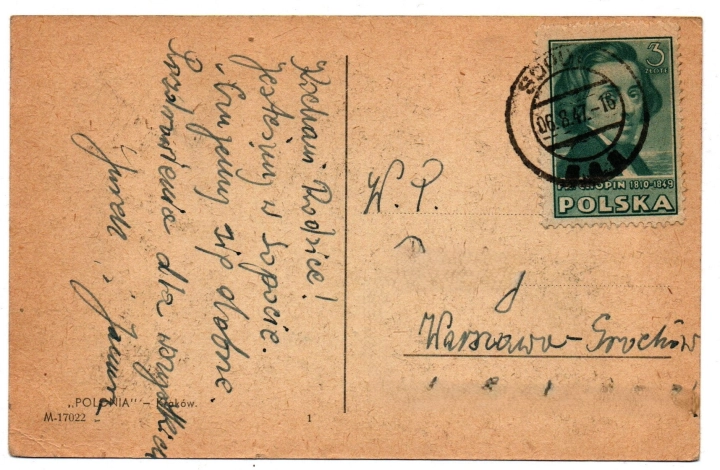 Kochani Rodzice!
Jesteśmy w Sopocie.
Czujemy się dobrze.
Pozdrowienia dla wszystkich
Jurek i
W. P.
Warszawa-Grochów
3
ZŁOTE
SOPOT
06.8.47.-16
CHOPIN 1810-1849
POLSKA
„POLONIA" – Kraków.
M-17022
1